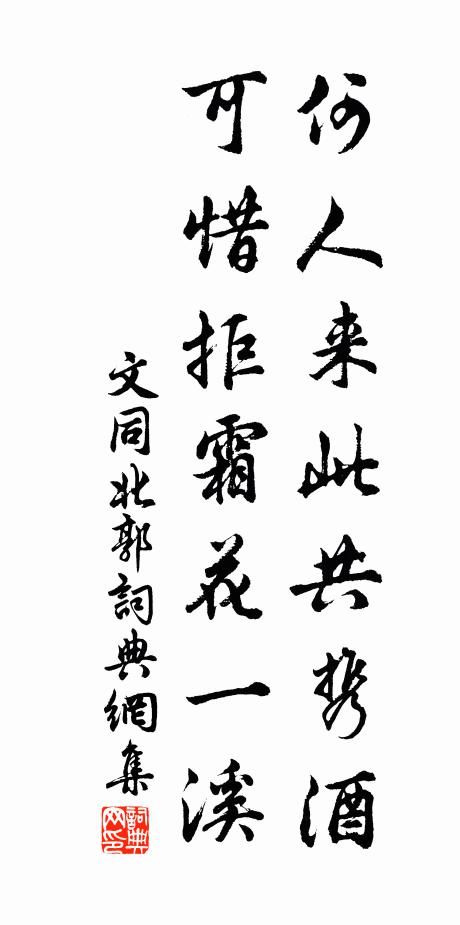 何人来此共携酒
可惜拒霜花一溪
文同北郭詞典網集
詞典網印